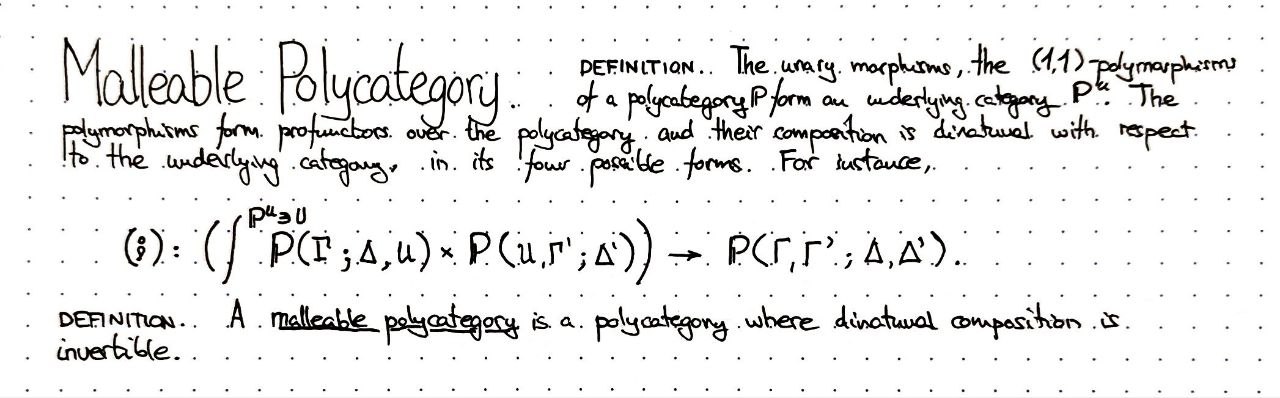 Malleable Polycategory. DEFINITION. The unary morphisms, the (1,1)-polymorphisms
of a polycategory P form an underlying category Pᵘ. The
polymorphisms form profunctors over the polycategory and their composition is dinatural with respect
to the underlying category, in its four possible forms. For instance,
(⨟): (∫^{Pᵘ∋U} P(Γ; Δ, U) × P(U, Γ'; Δ')) → P(Γ, Γ'; Δ, Δ').
DEFINITION. A malleable polycategory is a polycategory where dinatural composition is
invertible.